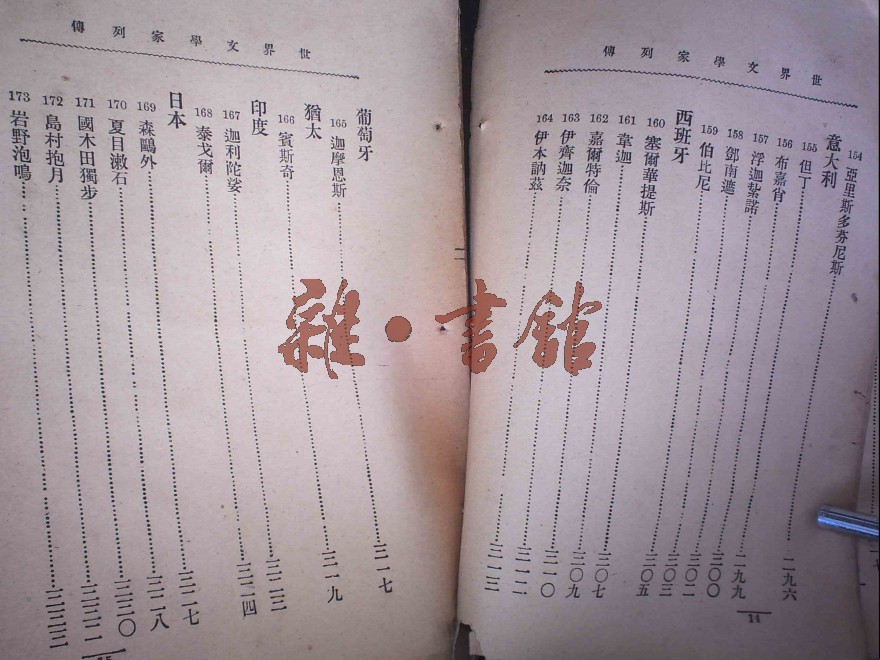 世界文學家列傳
154 亞里斯多芬尼斯
意大利
155 但丁……二九六
156 布嘉肖
157 浮迦紮諾……二九九
158 鄧南遮……三〇〇
159 伯比尼……三〇二
西班牙……三〇三
160 塞爾華提斯……三〇五
161 韋迦……三〇七
162 嘉爾特倫……三〇九
163 伊齊迦奈……三一〇
164 伊本訥茲……三一三
14
世界文學家列傳
二
葡萄牙
165 迦摩恩斯……三一七
猶太
166 賓斯奇……三一九
印度
167 迦利陀娑……三二三
168 泰戈爾……三二四
日本
169 森鷗外……三二七
170 夏目漱石……三二八
171 國木田獨步……三三〇
172 島村抱月……三三二
173 岩野泡鳴……三三三
15
雜·書館